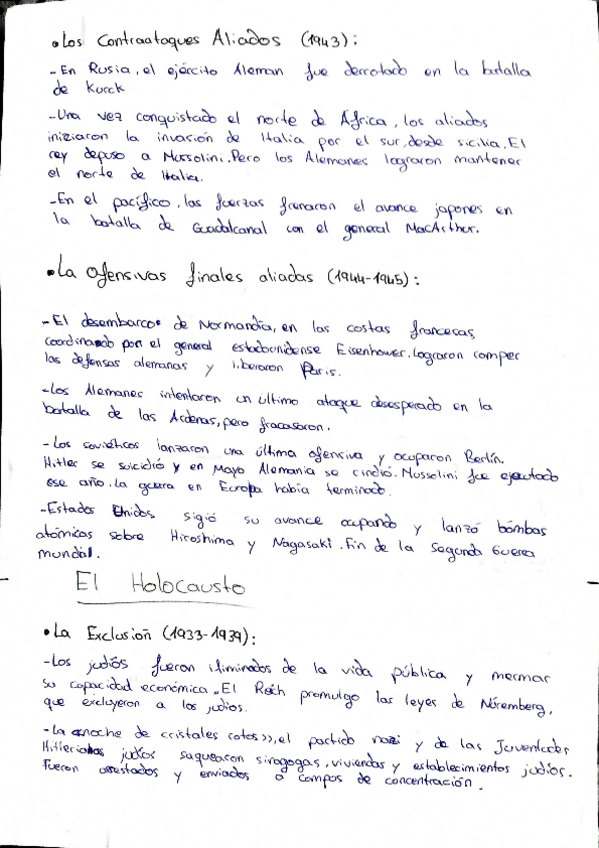 • Los Contraataques Aliados (1943):
- En Rusia, el ejército Aleman fue derrotado en la batalla
de Kurck
- Una vez conquistado el norte de África, los aliados
iniziaron la invasión de Italia por el sur, desde sicilia. El
rey depuso a Mussolini. Pero los Alemanes lograron mantener
el norte de Italia.
- En el pacífico, las fuerzas frenaron el avance japones en
la batalla de Guadalcanal con el general MacArthur.
• La Ofensivas finales aliadas (1944-1945):
- El desembarco de Normandía, en las costas francesas,
coordinando por el general estadounidense Eisenhower. Lograron romper
las defensas alemanas y liberaron Paris.
- Los Alemanes intentaron un ultimo ataque desesperado en la
batalla de las Ardenas, pero fracasaron.
- Los soviéticos lanzaron una última ofensiva y ocuparon Berlín.
Hitler se suicidió y en Mayo Alemania se rindió. Mussolini fue ejecutado
ese año. La guerra en Europa había terminado.
- Estados Unidos sigió su avance ocupando y lanzó bombas
atómicas sobre Hiroshima y Nagasaki. Fin de la Segunda Guerra
mundial.
El Holocausto
• La Exclusión (1933-1939):
- Los judiós fueron iliminados de la vida pública y mermar
su capacidad económica. El Reich promulgo las leyes de Núremberg,
que excluyeron a los judios.
- La noche de cristales rotos>>, el partido nazi y de las Juventudes
Hitlerianas judíos saquearon sinagogas, viviendas y establecimientos judíos.
Fueron arrestados y enviados a campos de concentración.